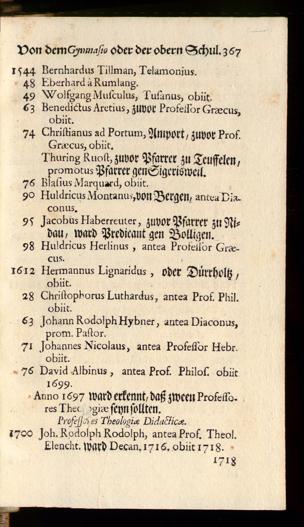 Von dem Gymnasio oder der obern Schul. 367
1544 Bernhardus Tillman, Telamonius.
48 Eberhard à Rumlang.
49 Wolfgang Musculus, Tusanus, obiit.
63 Benedictus Aretius, zuvor Professor Græcus,
obiit.
74 Christianus ad Portum, Amport, zuvor Prof.
Græcus, obiit.
Thuring Ruost, zuvor Pfarrer zu Teuffelen,
promotus Pfarrer gen Sigerisweil.
76 Blasius Marquard, obiit.
90 Huldricus Montanus, von Bergen, antea Dia-
conus.
95 Jacobus Haberreuter, zuvor Pfarrer zu Ni-
dau, ward Predicant gen Bolligen.
98 Huldricus Herlinus, antea Professor Græ-
cus.
1612 Hermannus Lignaridus, oder Dürrholtz,
obiit.
28 Christophorus Luthardus, antea Prof. Phil.
obiit.
63 Johann Rodolph Hybner, antea Diaconus,
prom. Pastor.
71 Johannes Nicolaus, antea Professor Hebr.
obiit.
76 David Albinus, antea Prof. Philos. obiit
1699.
Anno 1697 ward erkennt, daß zween Professo-
res Theologiæ seyn sollten.
Professores Theologiæ Didacticæ.
1700 Joh. Rodolph Rodolph, antea Prof. Theol.
Elencht. ward Decan. 1716. obiit 1718.
1718